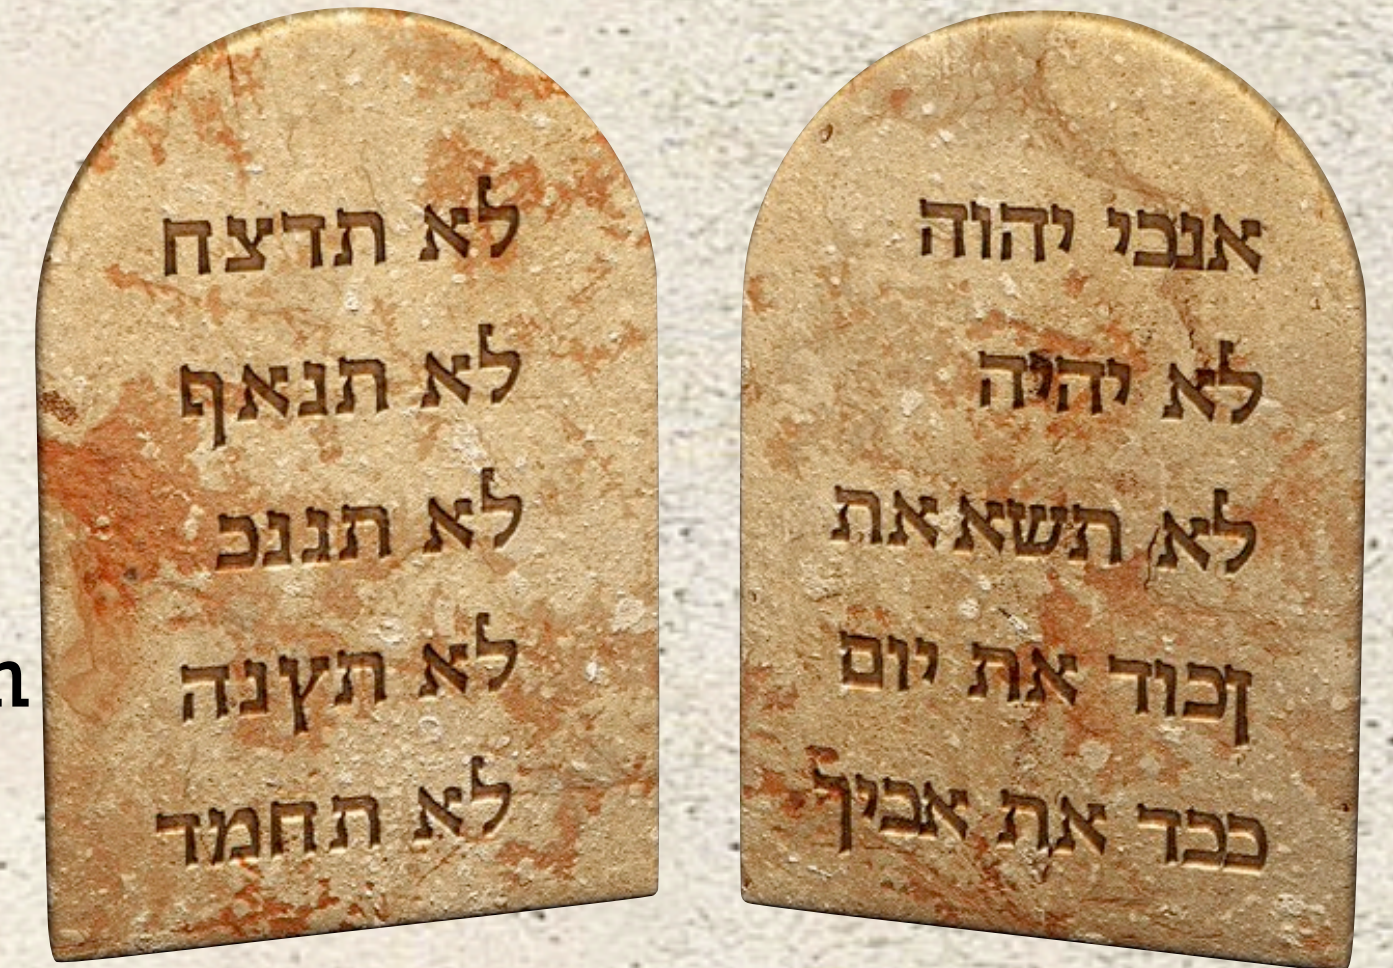 אנכי יהוה
לא יהיה
לא תשא את
ןכוד את יום
ככד את אביך
לא תדצח
לא תנאף
לא תגנכ
לא תץנה
לא תחמד